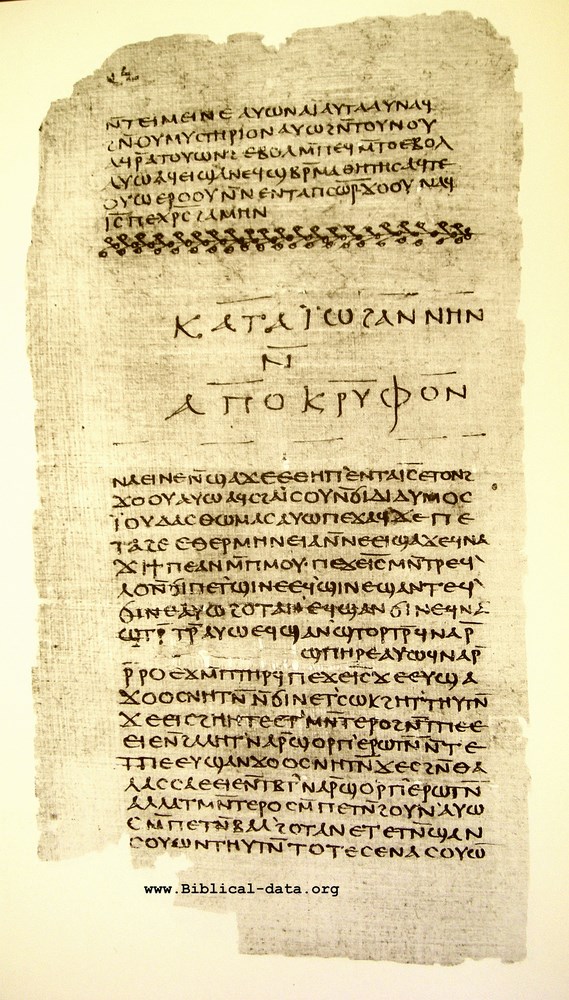 ⲛ̄ⲧⲉⲓⲙⲉⲓⲛⲉ ⲁⲩⲱ ⲛⲁⲓ̈ ⲁⲩⲧⲁⲁⲩ ⲛⲁϥ
ϩⲛ̄ⲛⲟⲩⲙⲩⲥⲧⲏⲣⲓⲟⲛ ⲁⲩⲱ ϩⲛ̄ⲧⲟⲩⲛⲟⲩ
ⲁϥⲣ̄ⲁⲧⲟⲩⲱⲛϩ ⲉⲃⲟⲗ ⲙ̄ⲡⲉϥⲙ̄ⲧⲟ ⲉⲃⲟⲗ
ⲁⲩⲱ ⲁϥⲉⲓ ϣⲁ ⲛⲉϥϣⲃⲣ̄ⲙⲁⲑⲏⲧⲏⲥ ⲁϥⲧⲉ
ⲟⲩⲱ ⲉⲣⲟⲟⲩ ⲛ̄ⲛⲉⲛⲧⲁⲡⲥⲱ̅ⲣ̅ ϫⲟⲟⲩ ⲛⲁϥ
ⲓ̅ⲥ̅ ⲡⲉⲭⲣ̅ⲥ̅ ϩⲁⲙⲏⲛ
ⲕⲁⲧⲁ ⲓ̈ⲱϩⲁⲛⲛⲏⲛ
ⲛ̄
ⲁⲡⲟⲕⲣⲩⲫⲟⲛ
ⲛⲁⲉⲓ ⲛⲉ ⲛ̄ϣⲁϫⲉ ⲉⲑⲏⲡ ⲉⲛⲧⲁ ⲓ̅ⲥ̅ ⲉⲧⲟⲛϩ
ϫⲟⲟⲩ ⲁⲩⲱ ⲁϥⲥϩⲁⲓ̈ⲥⲟⲩ ⲛ̄ϭⲓ ⲇⲓⲇⲩⲙⲟⲥ
ⲓ̈ⲟⲩⲇⲁⲥ ⲑⲱⲙⲁⲥ ⲁⲩⲱ ⲡⲉϫⲁϥ ϫⲉ ⲡⲉ
ⲧⲁϩⲉ ⲉⲑⲉⲣⲙⲏⲛⲉⲓⲁ ⲛ̄ⲛⲉⲉⲓϣⲁϫⲉ ϥⲛⲁ
ϫⲓ ϯⲡⲉ ⲁⲛ ⲙ̄ⲡⲙⲟⲩ ⲡⲉϫⲉ ⲓ̅ⲥ̅ ⲙⲛ̄ⲧⲣⲉϥ
ⲗⲟ ⲛ̄ϭⲓ ⲡⲉⲧϣⲓⲛⲉ ⲉϥϣⲓⲛⲉ ϣⲁⲛⲧⲉϥ
ϭⲓⲛⲉ ⲁⲩⲱ ϩⲟⲧⲁⲛ ⲉϥϣⲁⲛϭⲓⲛⲉ ϥⲛⲁ
ϣⲧⲣ̄ⲧⲣ̄ ⲁⲩⲱ ⲉϥϣⲁⲛϣⲧⲟⲣⲧⲣ̄ ϥⲛⲁⲣ̄
ϣⲡⲏⲣⲉ ⲁⲩⲱ ϥⲛⲁⲣ̄
ⲣ̄ⲣⲟ ⲉϫⲙ̄ ⲡⲧⲏⲣϥ ⲡⲉϫⲉ ⲓ̅ⲥ̅ ϫⲉ ⲉⲩϣⲁ
ϫⲟⲟⲥ ⲛⲏⲧⲛ̄ ⲛ̄ϭⲓ ⲛⲉⲧⲥⲱⲕ ϩⲏⲧ ⲑⲏⲩⲧⲛ̄
ϫⲉ ⲉⲓⲥϩⲏⲏⲧⲉ ⲉⲧⲙⲛ̄ⲧⲉⲣⲟ ϩⲛ̄ ⲧⲡⲉ ⲉ
ⲉⲓⲉ ⲛ̄ϩⲁⲗⲏⲧ ⲛⲁⲣ̄ϣⲟⲣⲡ ⲉⲣⲱⲧⲛ̄ ⲛ̄ⲧⲉ
ⲧⲡⲉ ⲉⲩϣⲁⲛϫⲟⲟⲥ ⲛⲏⲧⲛ̄ ϫⲉ ⲥϩⲛ̄ ⲑⲁ
ⲗⲁⲥⲥⲁ ⲉⲉⲓⲉ ⲛ̄ⲧⲃⲧ ⲛⲁⲣ̄ϣⲟⲣⲡ ⲉⲣⲱⲧⲛ̄
ⲁⲗⲗⲁ ⲧⲙⲛ̄ⲧⲉⲣⲟ ⲥⲙ̄ⲡⲉⲧⲛ̄ϩⲟⲩⲛ ⲁⲩⲱ
ⲥⲙ̄ⲡⲉⲧⲛ̄ⲃⲁⲗ ϩⲟⲧⲁⲛ ⲉⲧⲉⲧⲛ̄ϣⲁⲛ
ⲥⲟⲩⲱⲛ ⲧⲏⲩⲧⲛ̄ ⲧⲟⲧⲉ ⲥⲉⲛⲁⲥⲟⲩⲱ
www.Biblical-data.org